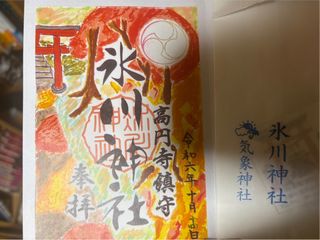 令和六年十月
高円寺鎮守
氷川神社
奉拝
氷川神社
気象神社